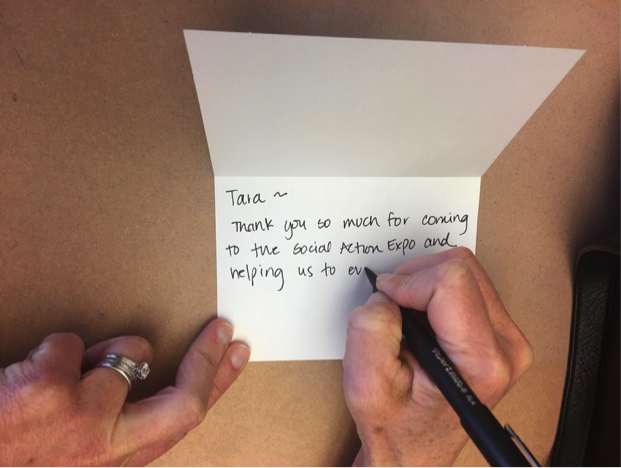 Tara ~
Thank you so much for coming
to the Social Action Expo and
helping us to ev